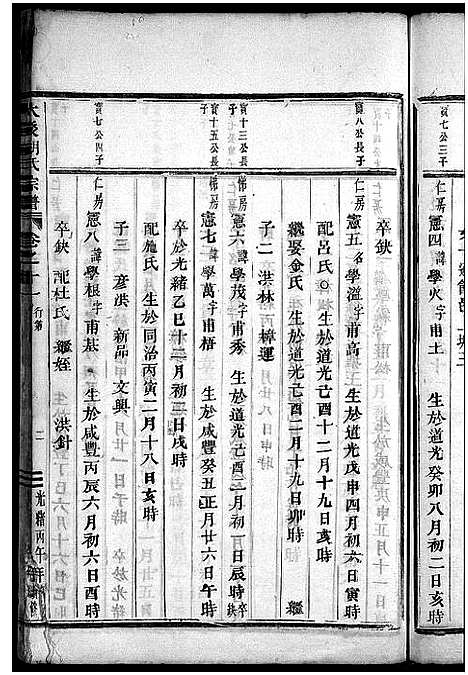 寅七公三子
憲四 諱學火 字甫土 生於道光癸卯八月初二日亥時
卒缺
寅八公長子
仁房
憲五 諱學溢 字甫高 生於道光戊申四月初六日寅時
配呂氏 生於道光己酉十二月十九日亥時
繼娶金氏 生於道光己酉二月十九日卯時 繼
子二 洪林 樟運
寅十三公長子
憲六 諱學茂 字甫秀 生於道光己酉二月初一日辰時 卒缺
寅十五公長子
憲七 諱學萬 字甫梧 生於咸豐癸丑正月廿六日午時
卒於光緒乙巳十二月初三日戌時
配施氏 生於同治丙寅二月十八日亥時
子三 彥洪 新品 文興
寅七公四子
仁房
憲八 諱學根 字甫基 生於咸豐丙辰六月初六日酉時
卒缺 配杜氏 繼姪 洪針
胡氏宗譜 卷之十一 行第 二 光緒丙午年